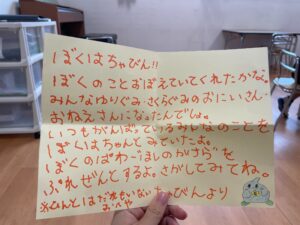 ぼくはちゃびん!!
ぼくのことおぼえていてくれたかな。
みんなゆりぐみ・さくらぐみのおにいさん・
おねえさんになったんでしょ。
いつもがんばっているみんなのことを
ぼくはちゃんとみていたよ。
ぼくのぱわーほしのかざらを
ぷれぜんとするよ。さがしてみてね。
ひんとはだれもいない
おへや
ちゃびんより